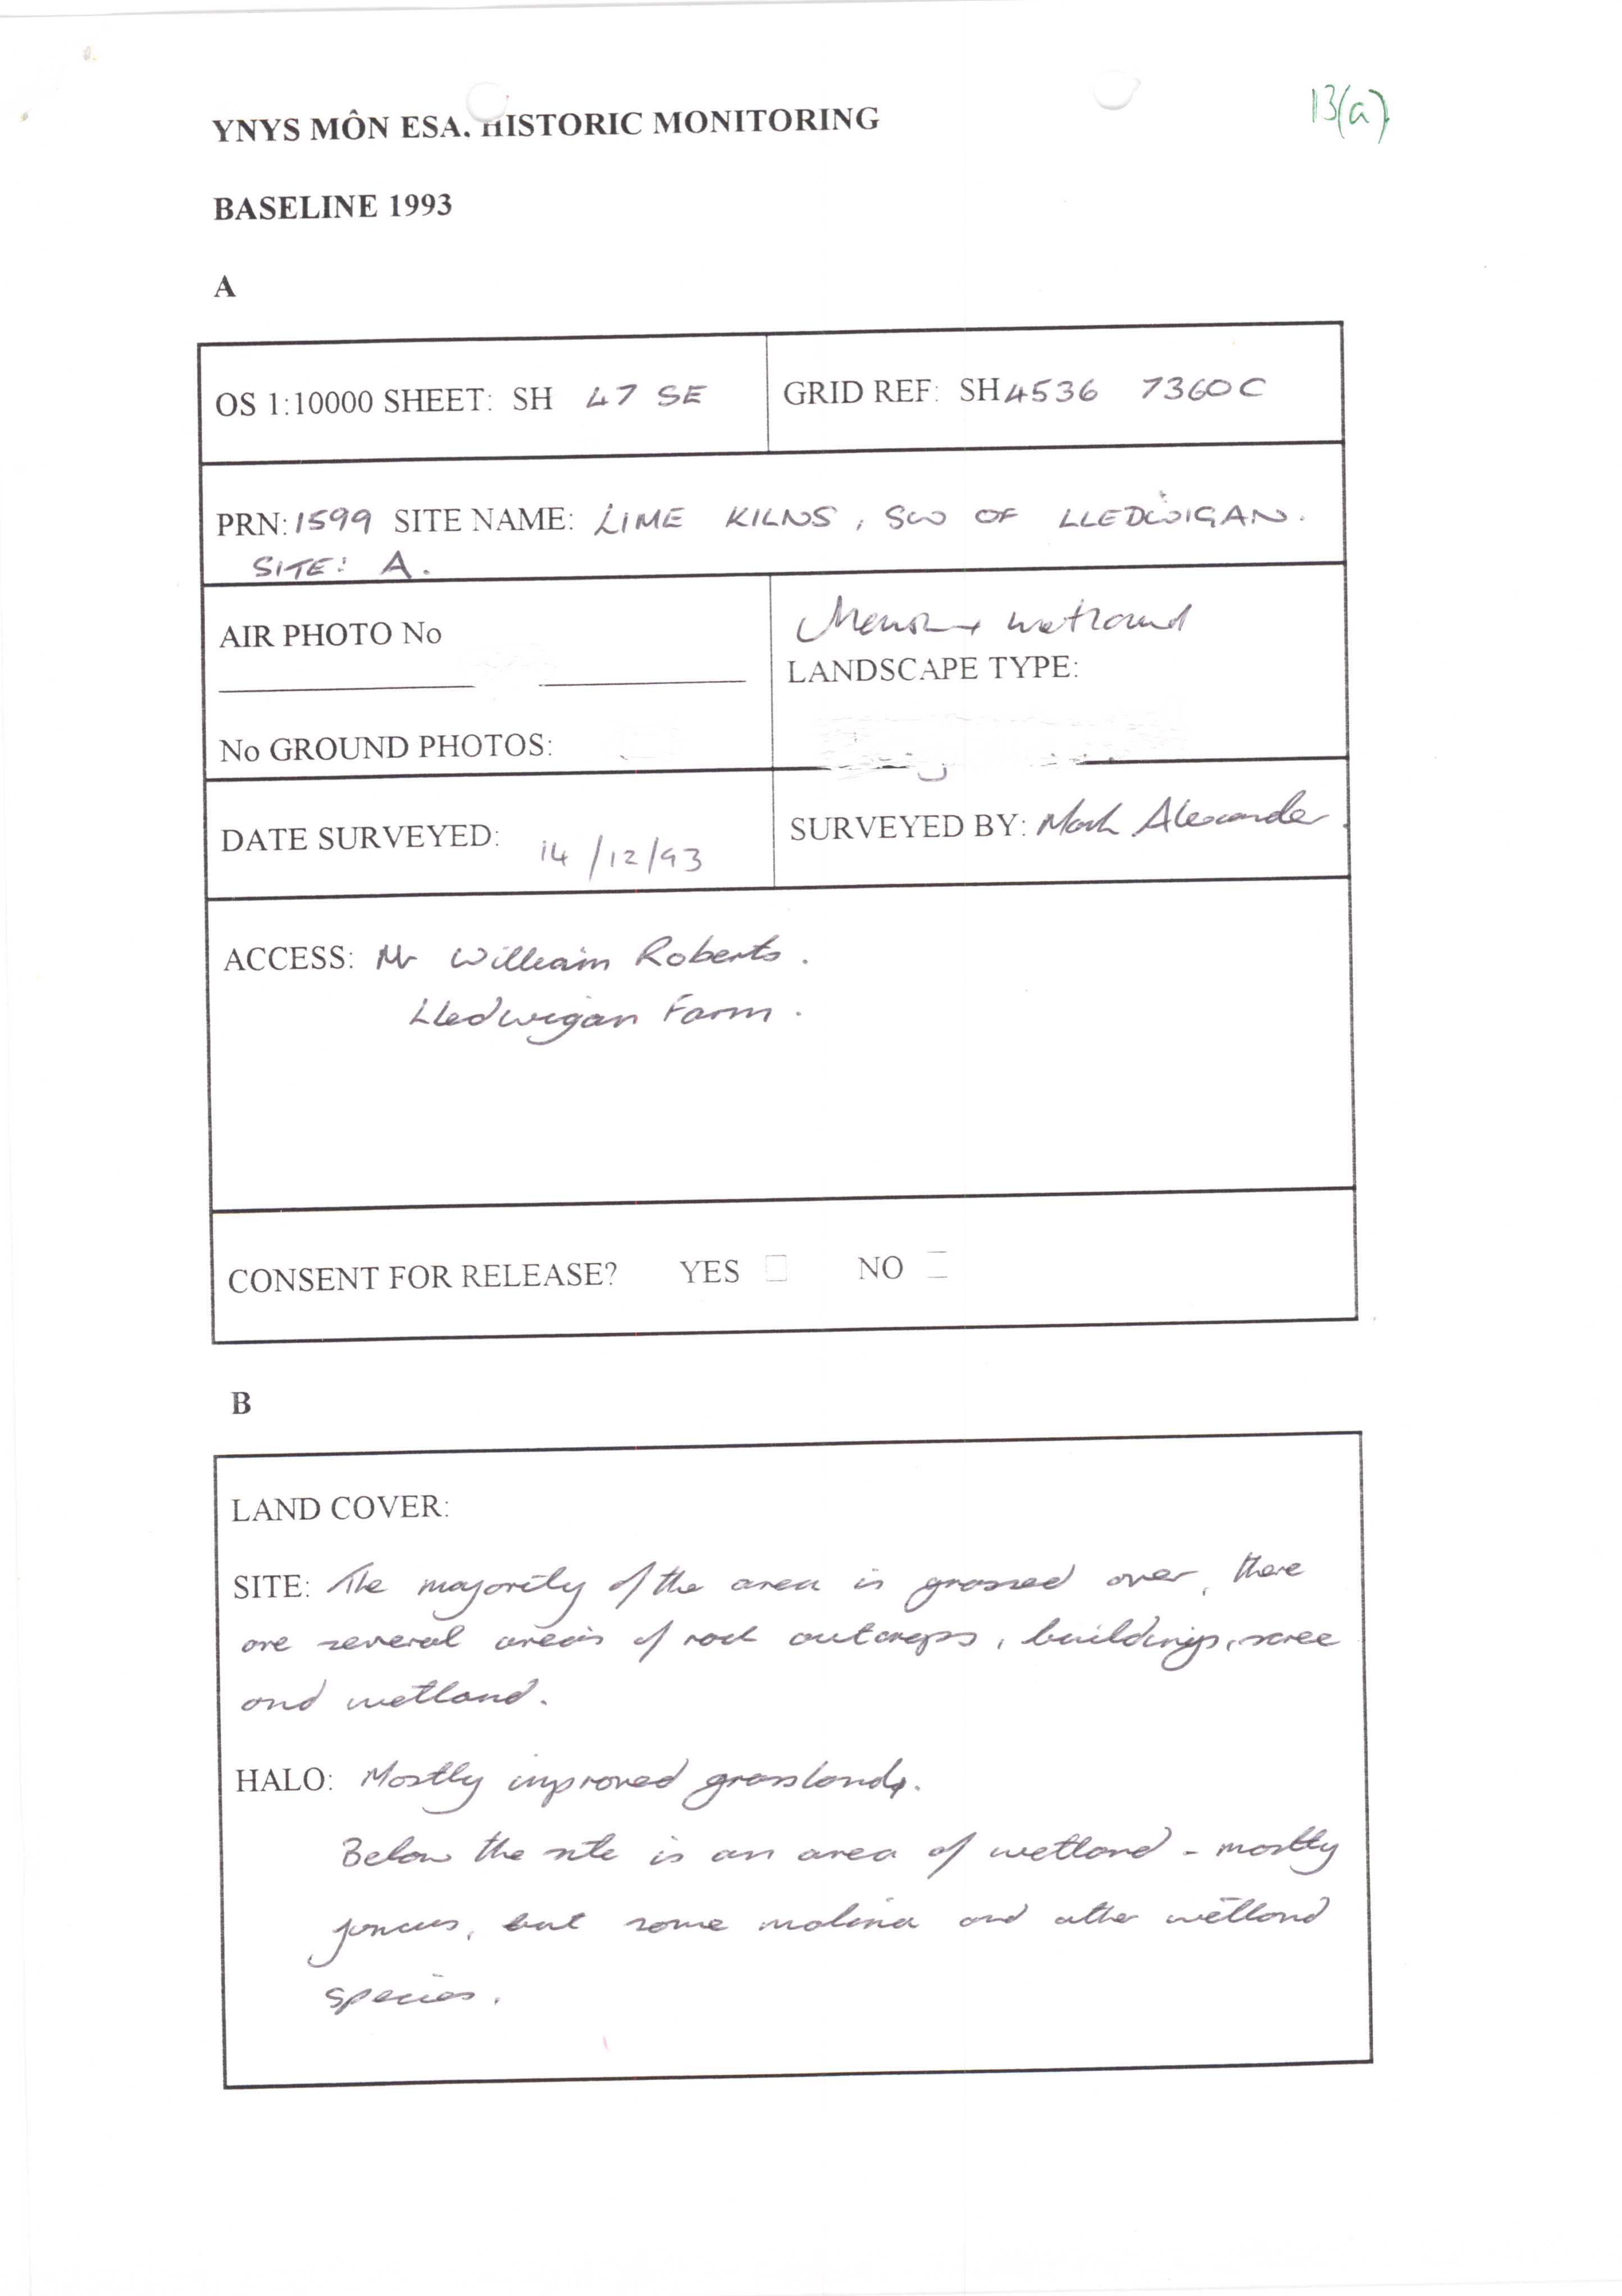 13(a)
YNYS MÔN ESA. HISTORIC MONITORING
BASELINE 1993
A
OS 1:10000 SHEET: SH 47 SE
GRID REF: SH4536 7360C
PRN: 1599 SITE NAME: LIME KILNS, SW OF LLEDWIGAN.
SITE: A.
AIR PHOTO No
wetland
LANDSCAPE TYPE:
No GROUND PHOTOS:
DATE SURVEYED: 14/12/93
SURVEYED BY: Mark Alexander.
ACCESS: Mr William Roberts.
Lledwigan Farm.
CONSENT FOR RELEASE? YES NO
B
LAND COVER:
SITE: The majority of the area is grassed over, there
are several areas of rock outcrops, buildings, scree
and wetland.
HALO: Mostly improved grassland.
Below the site is an area of wetland - mostly
juncus, but some molina and other wetland
species.